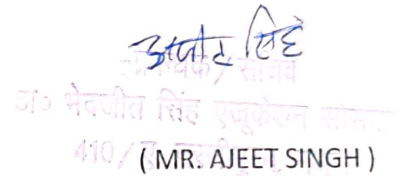 अजीत सिंह
सचिव
डॉ० भेदजीत सिंह एजूकेशन
410/
( MR. AJEET SINGH )